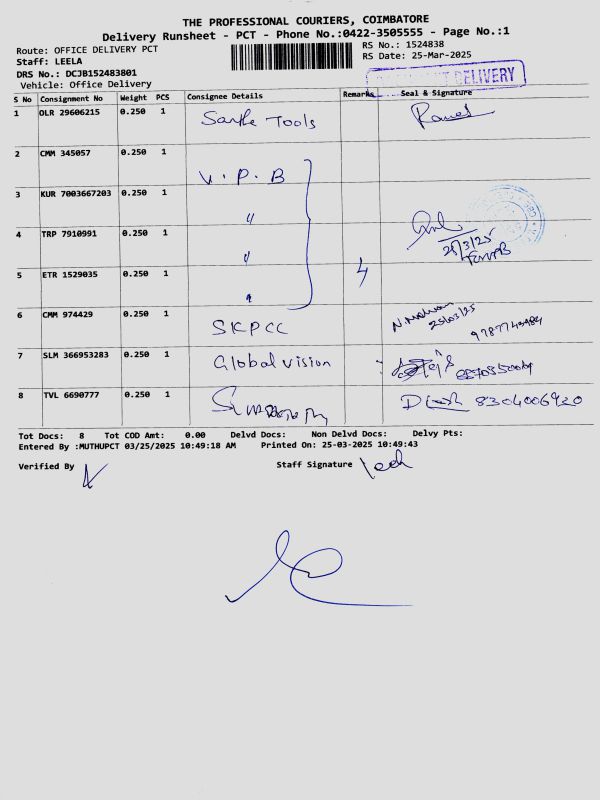 THE PROFESSIONAL COURIERS, COIMBATORE
Delivery Runsheet - PCT - Phone No.:0422-3505555 - Page No.:1
Route: OFFICE DELIVERY PCT
RS No.: 1524838
Staff: LEELA
RS Date: 25-Mar-2025
DRS No.: DCJB152483801
DELIVERY
Vehicle: Office Delivery
S No Consignment No Weight PCS Consignee Details Remarks Seal & Signature
1 OLR 29606215 0.250 1 Tools
2 CMM 345057 0.250 1 V.P.B
3 KUR 7003667203 0.250 1 "
4 TRP 7910991 0.250 1 " 25/3/25
5 ETR 1529035 0.250 1 " 4
6 CMM 974429 0.250 1 SKPCC 25/03/25
7 SLM 366953283 0.250 1 Global vision
8 TVL 6690777 0.250 1 8304006920
Tot Docs: 8 Tot COD Amt: 0.00 Delvd Docs: Non Delvd Docs: Delvy Pts:
Entered By :MUTHUPCT 03/25/2025 10:49:18 AM Printed On: 25-03-2025 10:49:43
Verified By Staff Signature